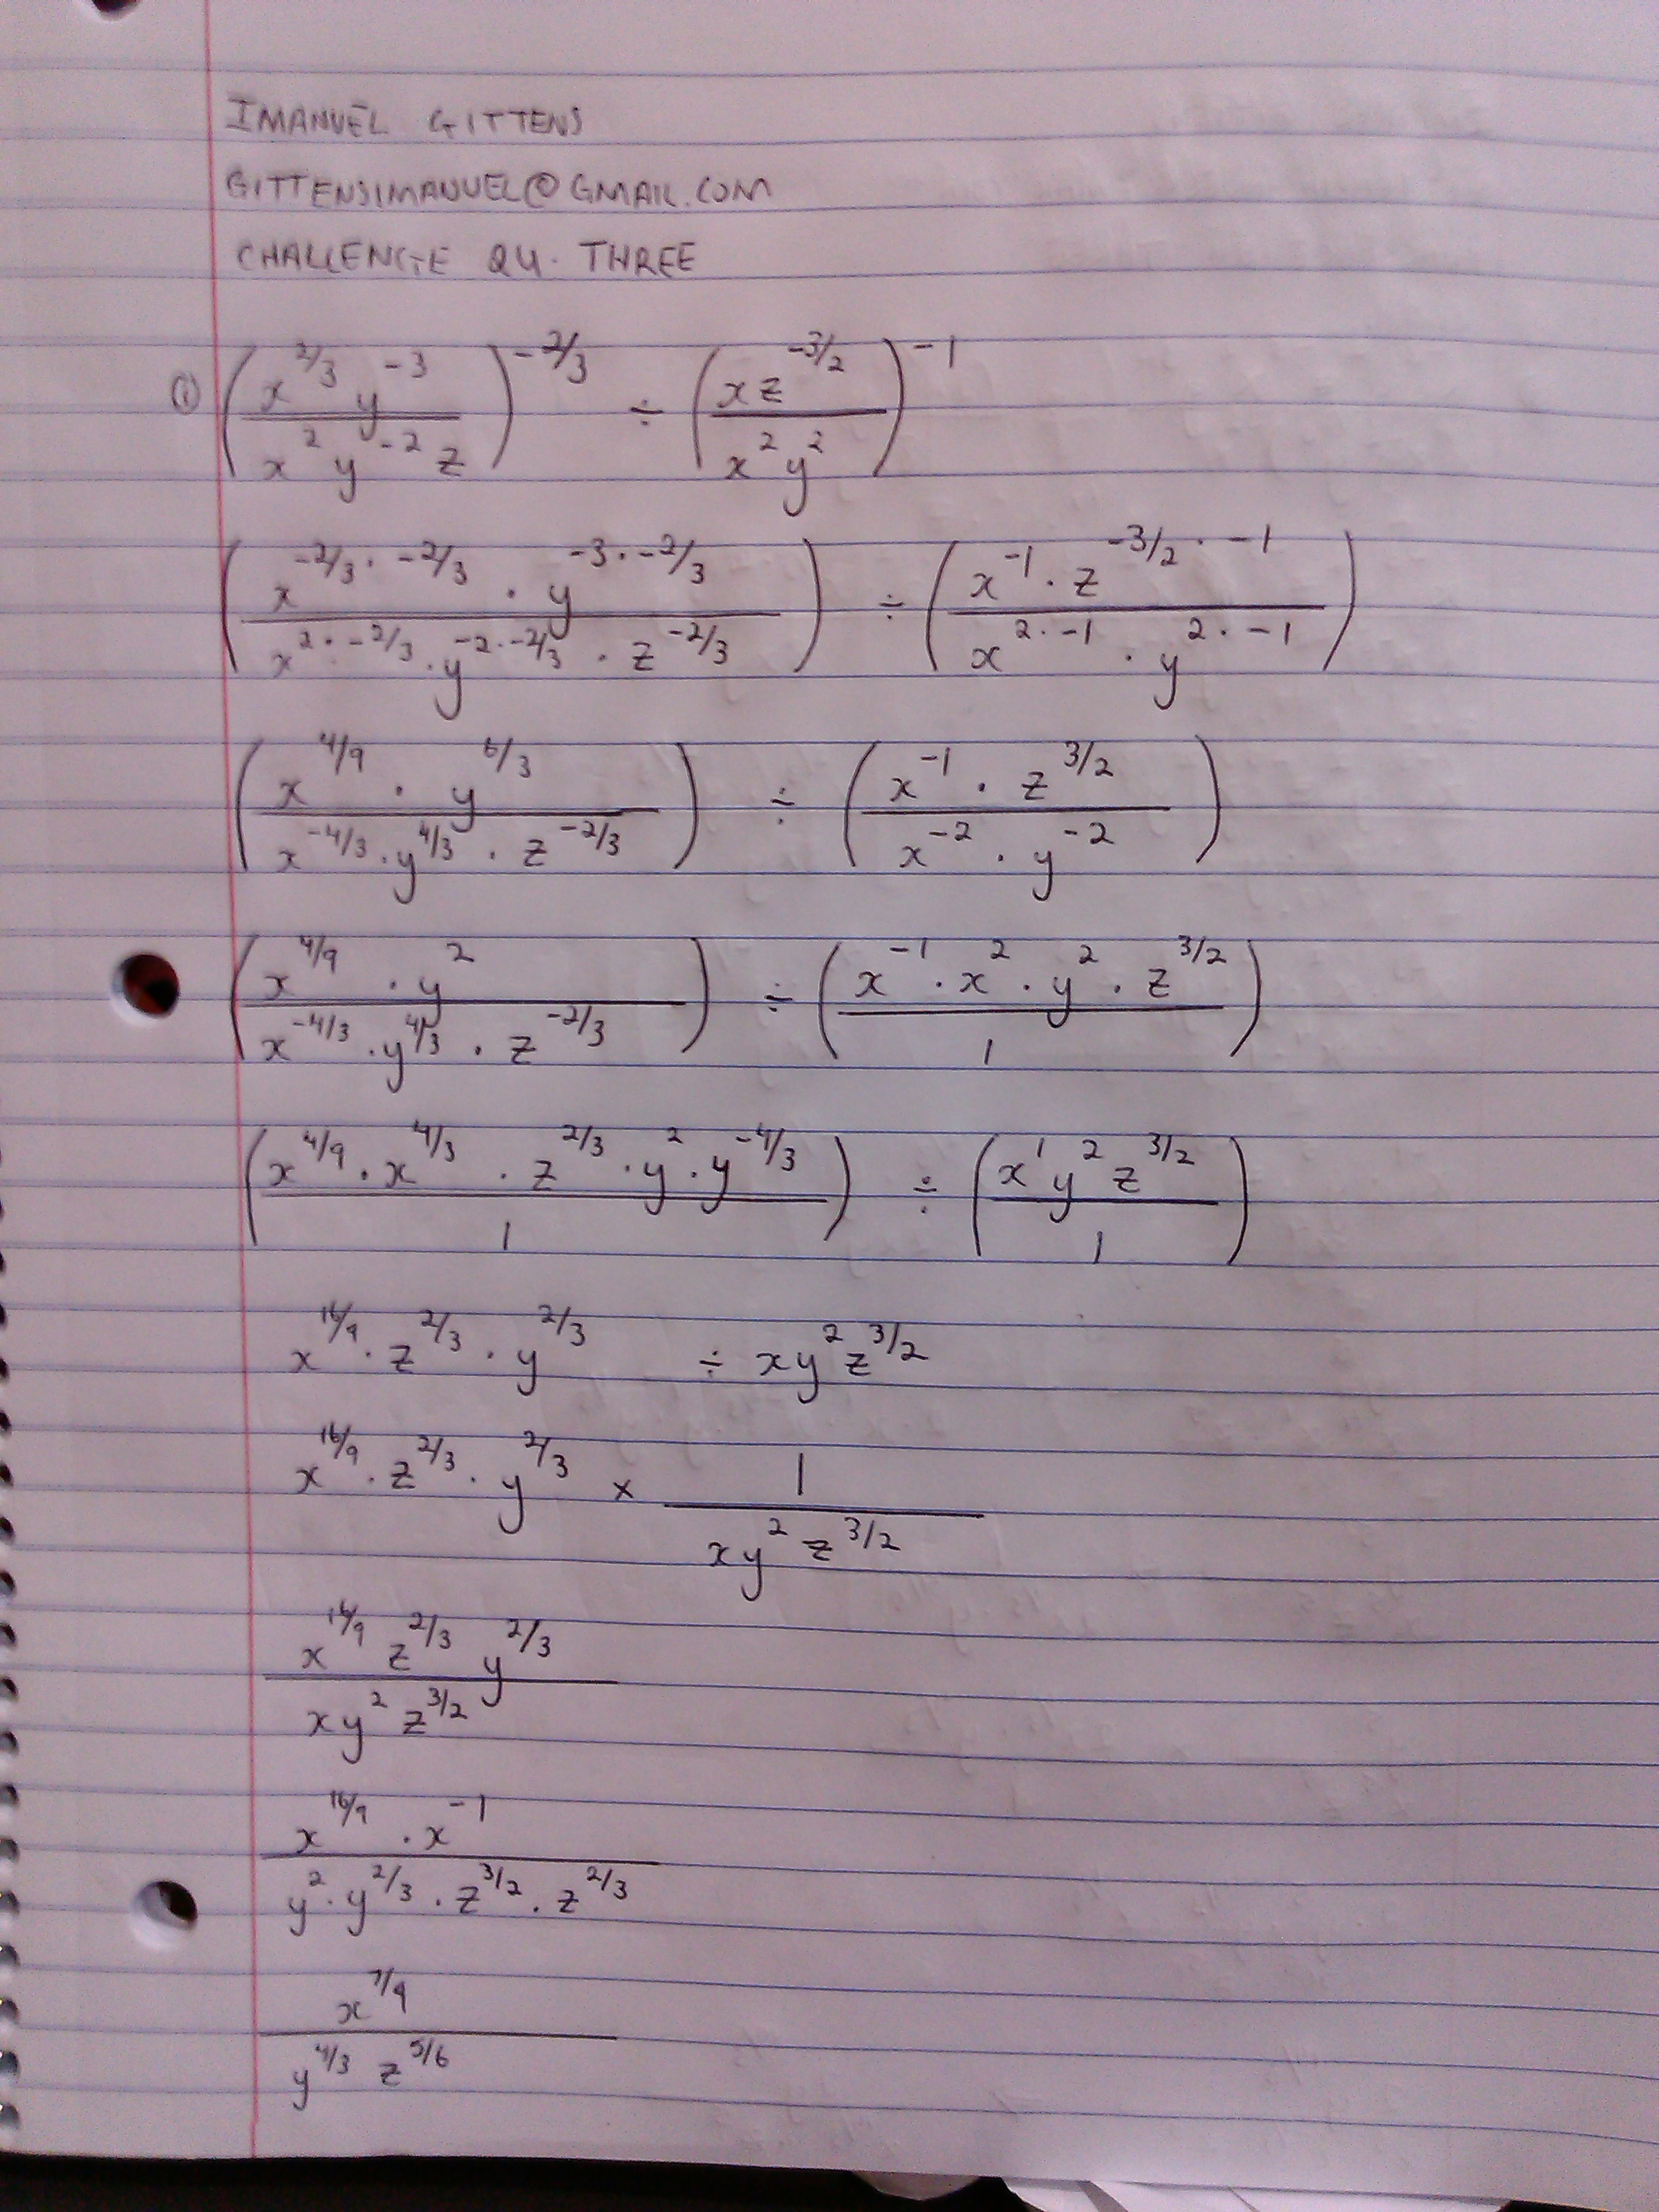 IMANUEL GITTENS
GITTENSIMANUEL@GMAIL.COM
CHALLENGE QU. THREE
① (x^{2/3} y^{-3} / x^2 y^{-2} z)^{-2/3} ÷ (x z^{-3/2} / x^2 y^2)^{-1}
(x^{-2/3 · -2/3} · y^{-3 · -2/3} / x^{2 · -2/3} · y^{-2 · -2/3} · z^{-2/3}) ÷ (x^{-1} · z^{-3/2 · -1} / x^{2 · -1} · y^{2 · -1})
(x^{4/9} · y^{6/3} / x^{-4/3} · y^{4/3} · z^{-2/3}) ÷ (x^{-1} · z^{3/2} / x^{-2} · y^{-2})
(x^{4/9} · y^2 / x^{-4/3} · y^{4/3} · z^{-2/3}) ÷ (x^{-1} · x^2 · y^2 · z^{3/2} / 1)
(x^{4/9} · x^{4/3} · z^{2/3} · y^2 · y^{-4/3} / 1) ÷ (x^1 y^2 z^{3/2} / 1)
x^{16/9} · z^{2/3} · y^{2/3} ÷ x y^2 z^{3/2}
x^{16/9} · z^{2/3} · y^{2/3} × 1 / x y^2 z^{3/2}
x^{16/9} z^{2/3} y^{2/3} / x y^2 z^{3/2}
x^{16/9} · x^{-1} / y^2 · y^{2/3} · z^{3/2} · z^{2/3}
x^{7/9} / y^{4/3} z^{5/6}